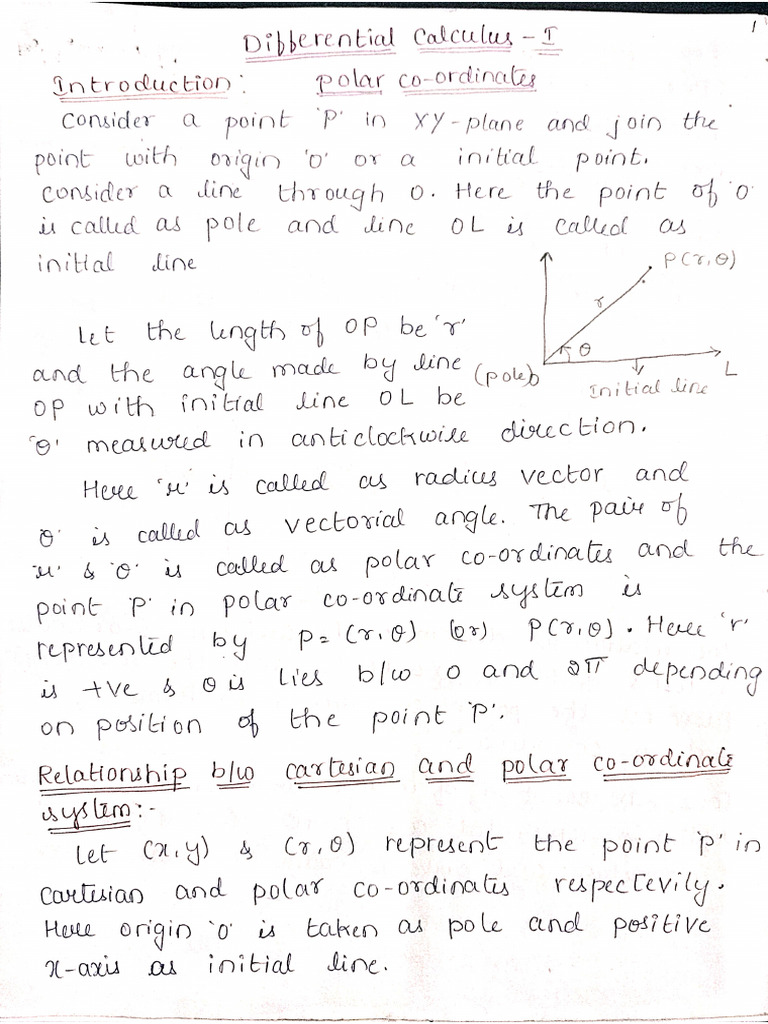 1
Differential Calculus - I
Introduction: polar co-ordinates
Consider a point 'P' in XY-plane and join the
point with origin 'O' or a initial point.
consider a line through O. Here the point of 'O'
is called as pole and line OL is called as
initial line
P(r,θ)
r
θ
(pole)O
L
Initial line
Let the length of OP be 'r'
and the angle made by line
OP with initial line OL be
'θ' measured in anticlockwise direction.
Here 'r' is called as radius vector and
'θ' is called as vectorial angle. The pair of
'r' & 'θ' is called as polar co-ordinates and the
point 'P' in polar co-ordinate system is
represented by P=(r,θ) (or) P(r,θ). Here 'r'
is +ve & θ is lies b/w 0 and 2π depending
on position of the point 'P'.
Relationship b/w cartesian and polar co-ordinate
system:-
Let (x,y) & (r,θ) represent the point 'P' in
cartesian and polar co-ordinates respectevily.
Here origin 'O' is taken as pole and positive
x-axis as initial line.